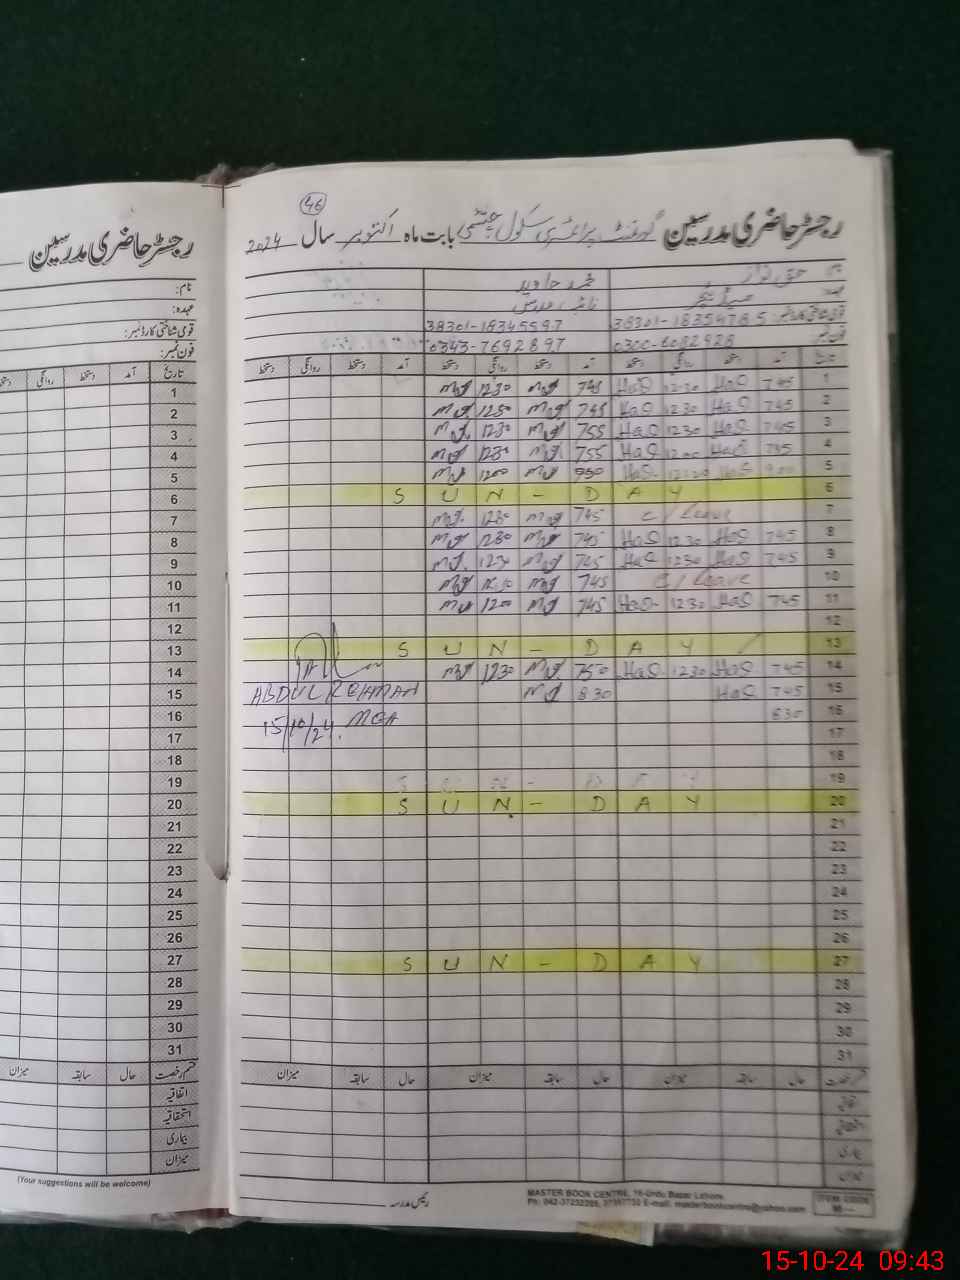 رجسٹر حاضری مدرسین
نام:
عہدہ:
قومی شناختی کارڈ نمبر:
فون نمبر:
تاریخ آمد دستخط روانگی
1
2
3
4
5
6
7
8
9
10
11
12
13
14
15
16
17
18
19
20
21
22
23
24
25
26
27
28
29
30
31
قسم رخصت حال سابقہ میزان
اتفاقیہ
استحقاقیہ
بیماری
میزان
(Your suggestions will be welcome)
46
رجسٹر حاضری مدرسین گورنمنٹ پرائمری سکول بابت ماہ اکتوبر سال 2024
نام حق نواز محمد جاوید
38301-1835478-5 38301-1834559-7
فون نمبر 0300-6082928 0343-7692897
تاریخ آمد دستخط روانگی دستخط آمد دستخط روانگی دستخط آمد دستخط روانگی دستخط
1 745 HaS 1230 HaS 745 1230
2 745 HaS 1230 HaS 745 1230
3 745 HaS 1230 HaS 755 1230
4 745 HaS 1200 HaS 755 1230
5 900 HaS HaS 1200
6 SUN-DAY
7 C/Leave 745 1230
8 745 HaS 1230 HaS 745 1230
9 745 HaS 1230 HaS 745 1230
10 C/Leave 745
11 745 HaS 1230 HaS 745 1200
12
13 SUN-DAY
14 745 HaS 1230 HaS 750 1230
15 745 HaS 830 ABDUL REHMAN
16 830 15/10/24. MEA
17
18
19 SUN-DAY
20 SUN-DAY
21
22
23
24
25
26
27 SUN-DAY
28
29
30
31
قسم رخصت حال سابقہ میزان حال سابقہ میزان حال سابقہ میزان
اتفاقیہ
استحقاقیہ
بیماری
میزان
رئیس مدرسہ
MASTER BOOK CENTRE, 16-Urdu Bazar Lahore.
E-mail: masterbookcentre@yahoo.com
15-10-24 09:43